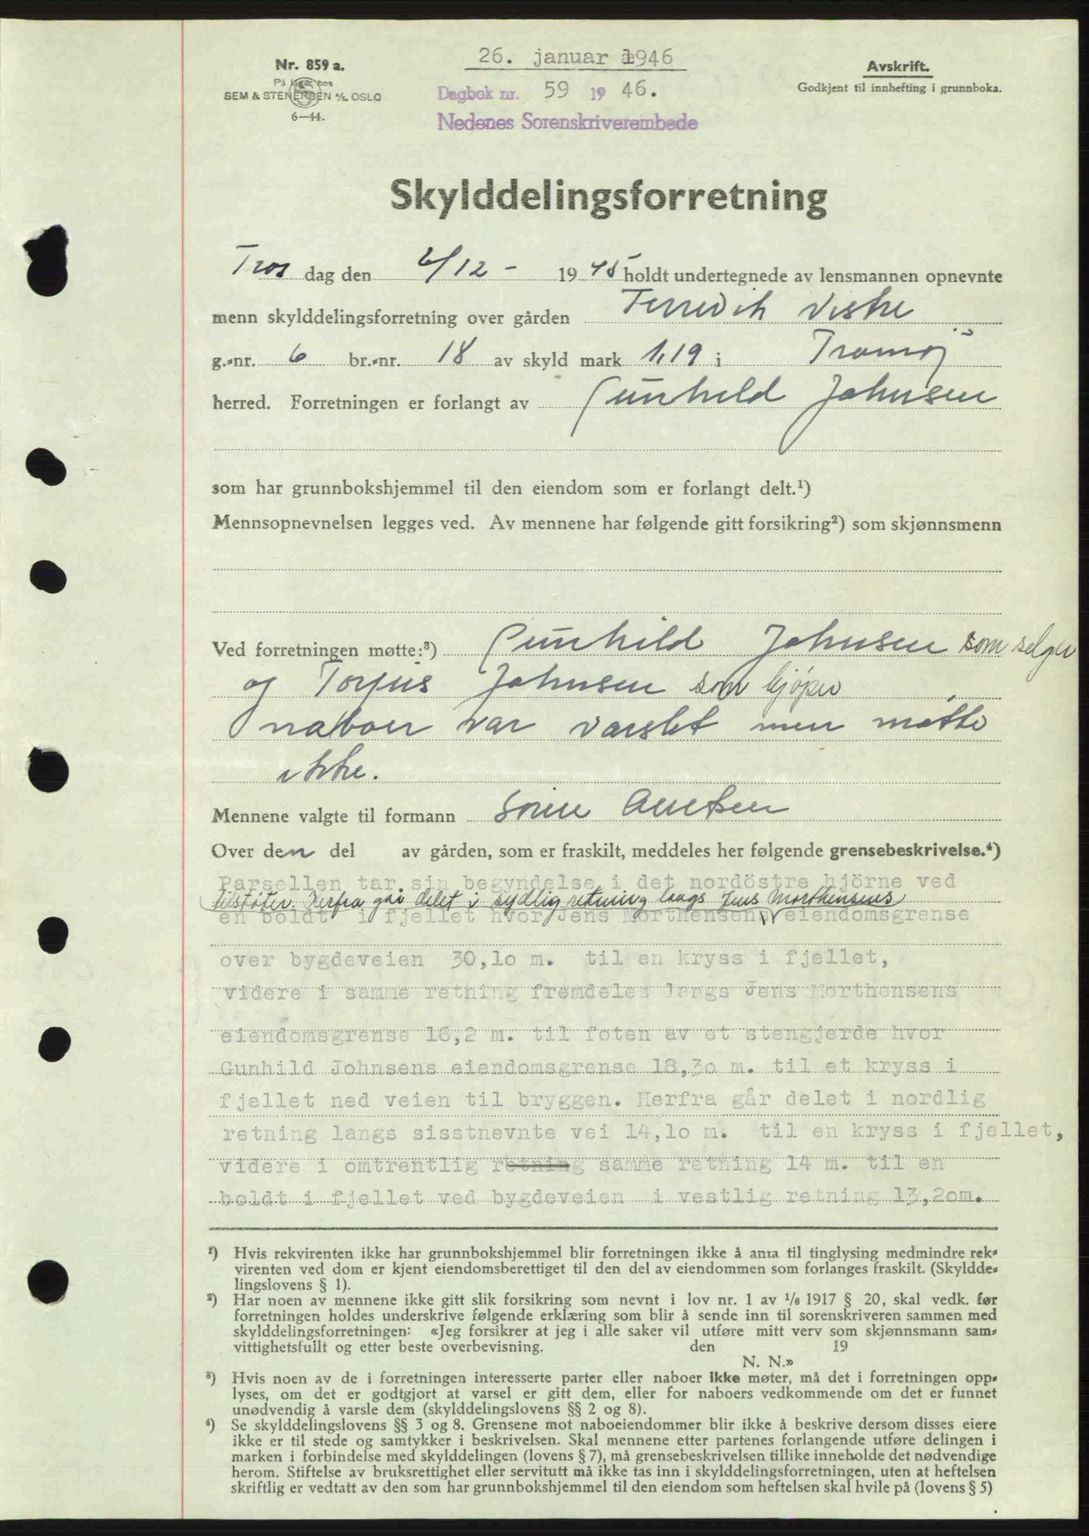 Nr. 859 a.
På lager hos
SEM & STENERSEN A/S, OSLO
6—44.
26. januar 1946
Dagbok nr. 59 19 46.
Nedenes Sorenskriverembede
Avskrift.
Godkjent til innhefting i grunnboka.
Skylddelingsforretning
Tros dag den 6/12 - 19 45 holdt undertegnede av lensmannen opnevnte
menn skylddelingsforretning over gården Færvik vestre
g.-nr. 6 br.-nr. 18 av skyld mark 1,19 i Tromøy
herred. Forretningen er forlangt av Gunhild Johnsen
som har grunnbokshjemmel til den eiendom som er forlangt delt.¹)
Mennsopnevnelsen legges ved. Av mennene har følgende gitt forsikring²) som skjønnsmenn
Ved forretningen møtte:³) Gunhild Johnsen som selger
og Torjus Johnsen som kjøper
naboer var varslet men møtte
ikke.
Mennene valgte til formann
Over den del av gården, som er fraskilt, meddeles her følgende grensebeskrivelse.⁴)
Parsellen tar sin begyndelse i det nordöstre hjörne ved
tilstøter. Derfra går delet i sydlig retning langs Jens Morthensens
en boldt i fjellet hvor Jens Morthensens eiendomsgrense
over bygdeveien 30,10 m. til en kryss i fjellet,
videre i samme retning fremdeles langs Jens Morthensens
eiendomsgrense 16,2 m. til foten av et stengjerde hvor
Gunhild Johnsens eiendomsgrense 18,30 m. til et kryss i
fjellet ned veien til bryggen. Herfra går delet i nordlig
retning langs sisstnevnte vei 14,10 m. til en kryss i fjellet,
videre i omtrentlig retning samme retning 14 m. til en
boldt i fjellet ved bygdeveien i vestlig retning 13,20m.
¹) Hvis rekvirenten ikke har grunnbokshjemmel blir forretningen ikke å anta til tinglysing medmindre rek-
virenten ved dom er kjent eiendomsberettiget til den del av eiendommen som forlanges fraskilt. (Skyldde-
lingslovens § 1).
²) Har noen av mennene ikke gitt slik forsikring som nevnt i lov nr. 1 av 1/6 1917 § 20, skal vedk. før
forretningen holdes underskrive følgende erklæring som blir å sende inn til sorenskriveren sammen med
skylddelingsforretningen: «Jeg forsikrer at jeg i alle saker vil utføre mitt verv som skjønnsmann sam-
vittighetsfullt og etter beste overbevisning. den 19
N. N.»
³) Hvis noen av de i forretningen interesserte parter eller naboer ikke møter, må det i forretningen opp-
lyses, om det er godtgjort at varsel er gitt dem, eller for naboers vedkommende om det er funnet
unødvendig å varsle dem (skylddelingslovens §§ 2 og 8).
⁴) Se skylddelingslovens §§ 3 og 8. Grensene mot naboeiendommer blir ikke å beskrive dersom disses eiere
ikke er til stede og samtykker i beskrivelsen. Skal mennene etter partenes forlangende utføre delingen i
marken i forbindelse med skylddelingen (lovens § 7), må grensebeskrivelsen tillike inneholde det nødvendige
herom. Stiftelse av bruksrettighet eller servitutt må ikke tas inn i skylddelingsforretningen, uten at heftelsen
skriftlig er vedtatt av den som har grunnbokshjemmel til den eiendom som heftelsen skal hvile på (lovens § 5)